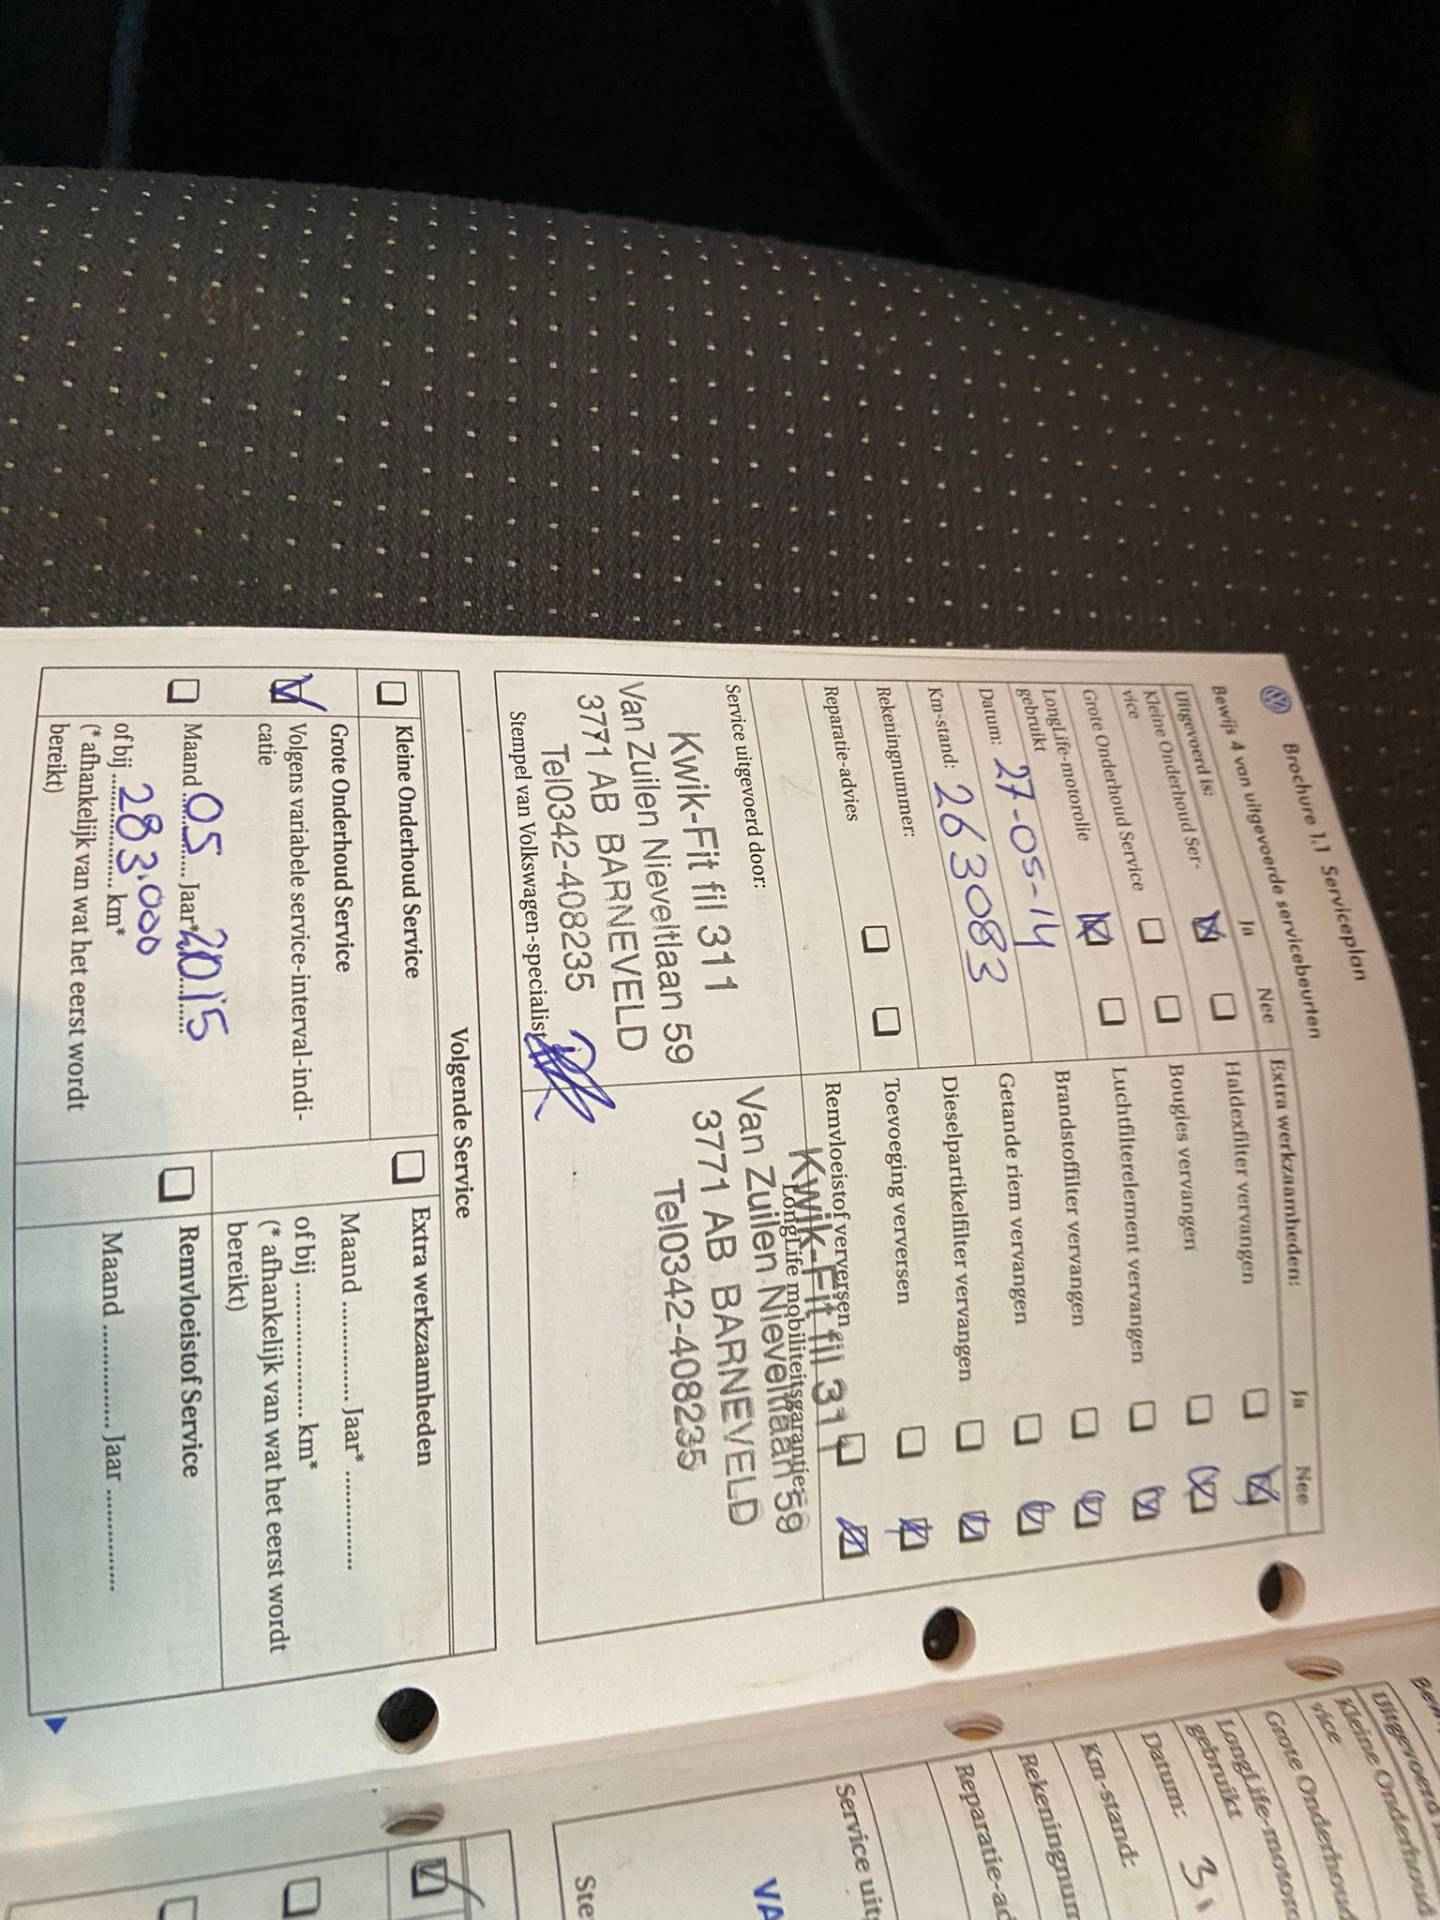 Brochure 1.1 Serviceplan
Bewijs 4 van uitgevoerde servicebeurten
Uitgevoerd is: Ja Nee
Kleine Onderhoud Ser-
vice
Grote Onderhoud Service
LongLife-motorolie
gebruikt
Datum: 27-05-14
Km-stand: 263083
Rekeningnummer:
Reparatie-advies
Extra werkzaamheden: Ja Nee
Haldexfilter vervangen
Bougies vervangen
Luchtfilterelement vervangen
Brandstoffilter vervangen
Getande riem vervangen
Dieselpartikelfilter vervangen
Toevoeging verversen
Remvloeistof verversen
Service uitgevoerd door:
Kwik-Fit fil 311
Van Zuilen Nieveltlaan 59
3771 AB BARNEVELD
Tel0342-408235
Stempel van Volkswagen-specialist
LongLife mobiliteitsgarantie
Kwik-Fit fil 311
Van Zuilen Nieveltlaan 59
3771 AB BARNEVELD
Tel0342-408235
Volgende Service
Kleine Onderhoud Service
Grote Onderhoud Service
Volgens variabele service-interval-indi-
catie
Maand 05 Jaar* 2015
of bij 283.000 km*
(* afhankelijk van wat het eerst wordt
bereikt)
Extra werkzaamheden
Maand ............. Jaar* .............
of bij .................... km*
(* afhankelijk van wat het eerst wordt
bereikt)
Remvloeistof Service
Maand ............. Jaar .............
Uitgevoerd
Kleine Onderhoud
vice
Grote Onderhoud
LongLife-motoro
gebruikt
Datum: 31
Km-stand:
Rekeningnum
Reparatie-ad
Service uit
VA
Ste